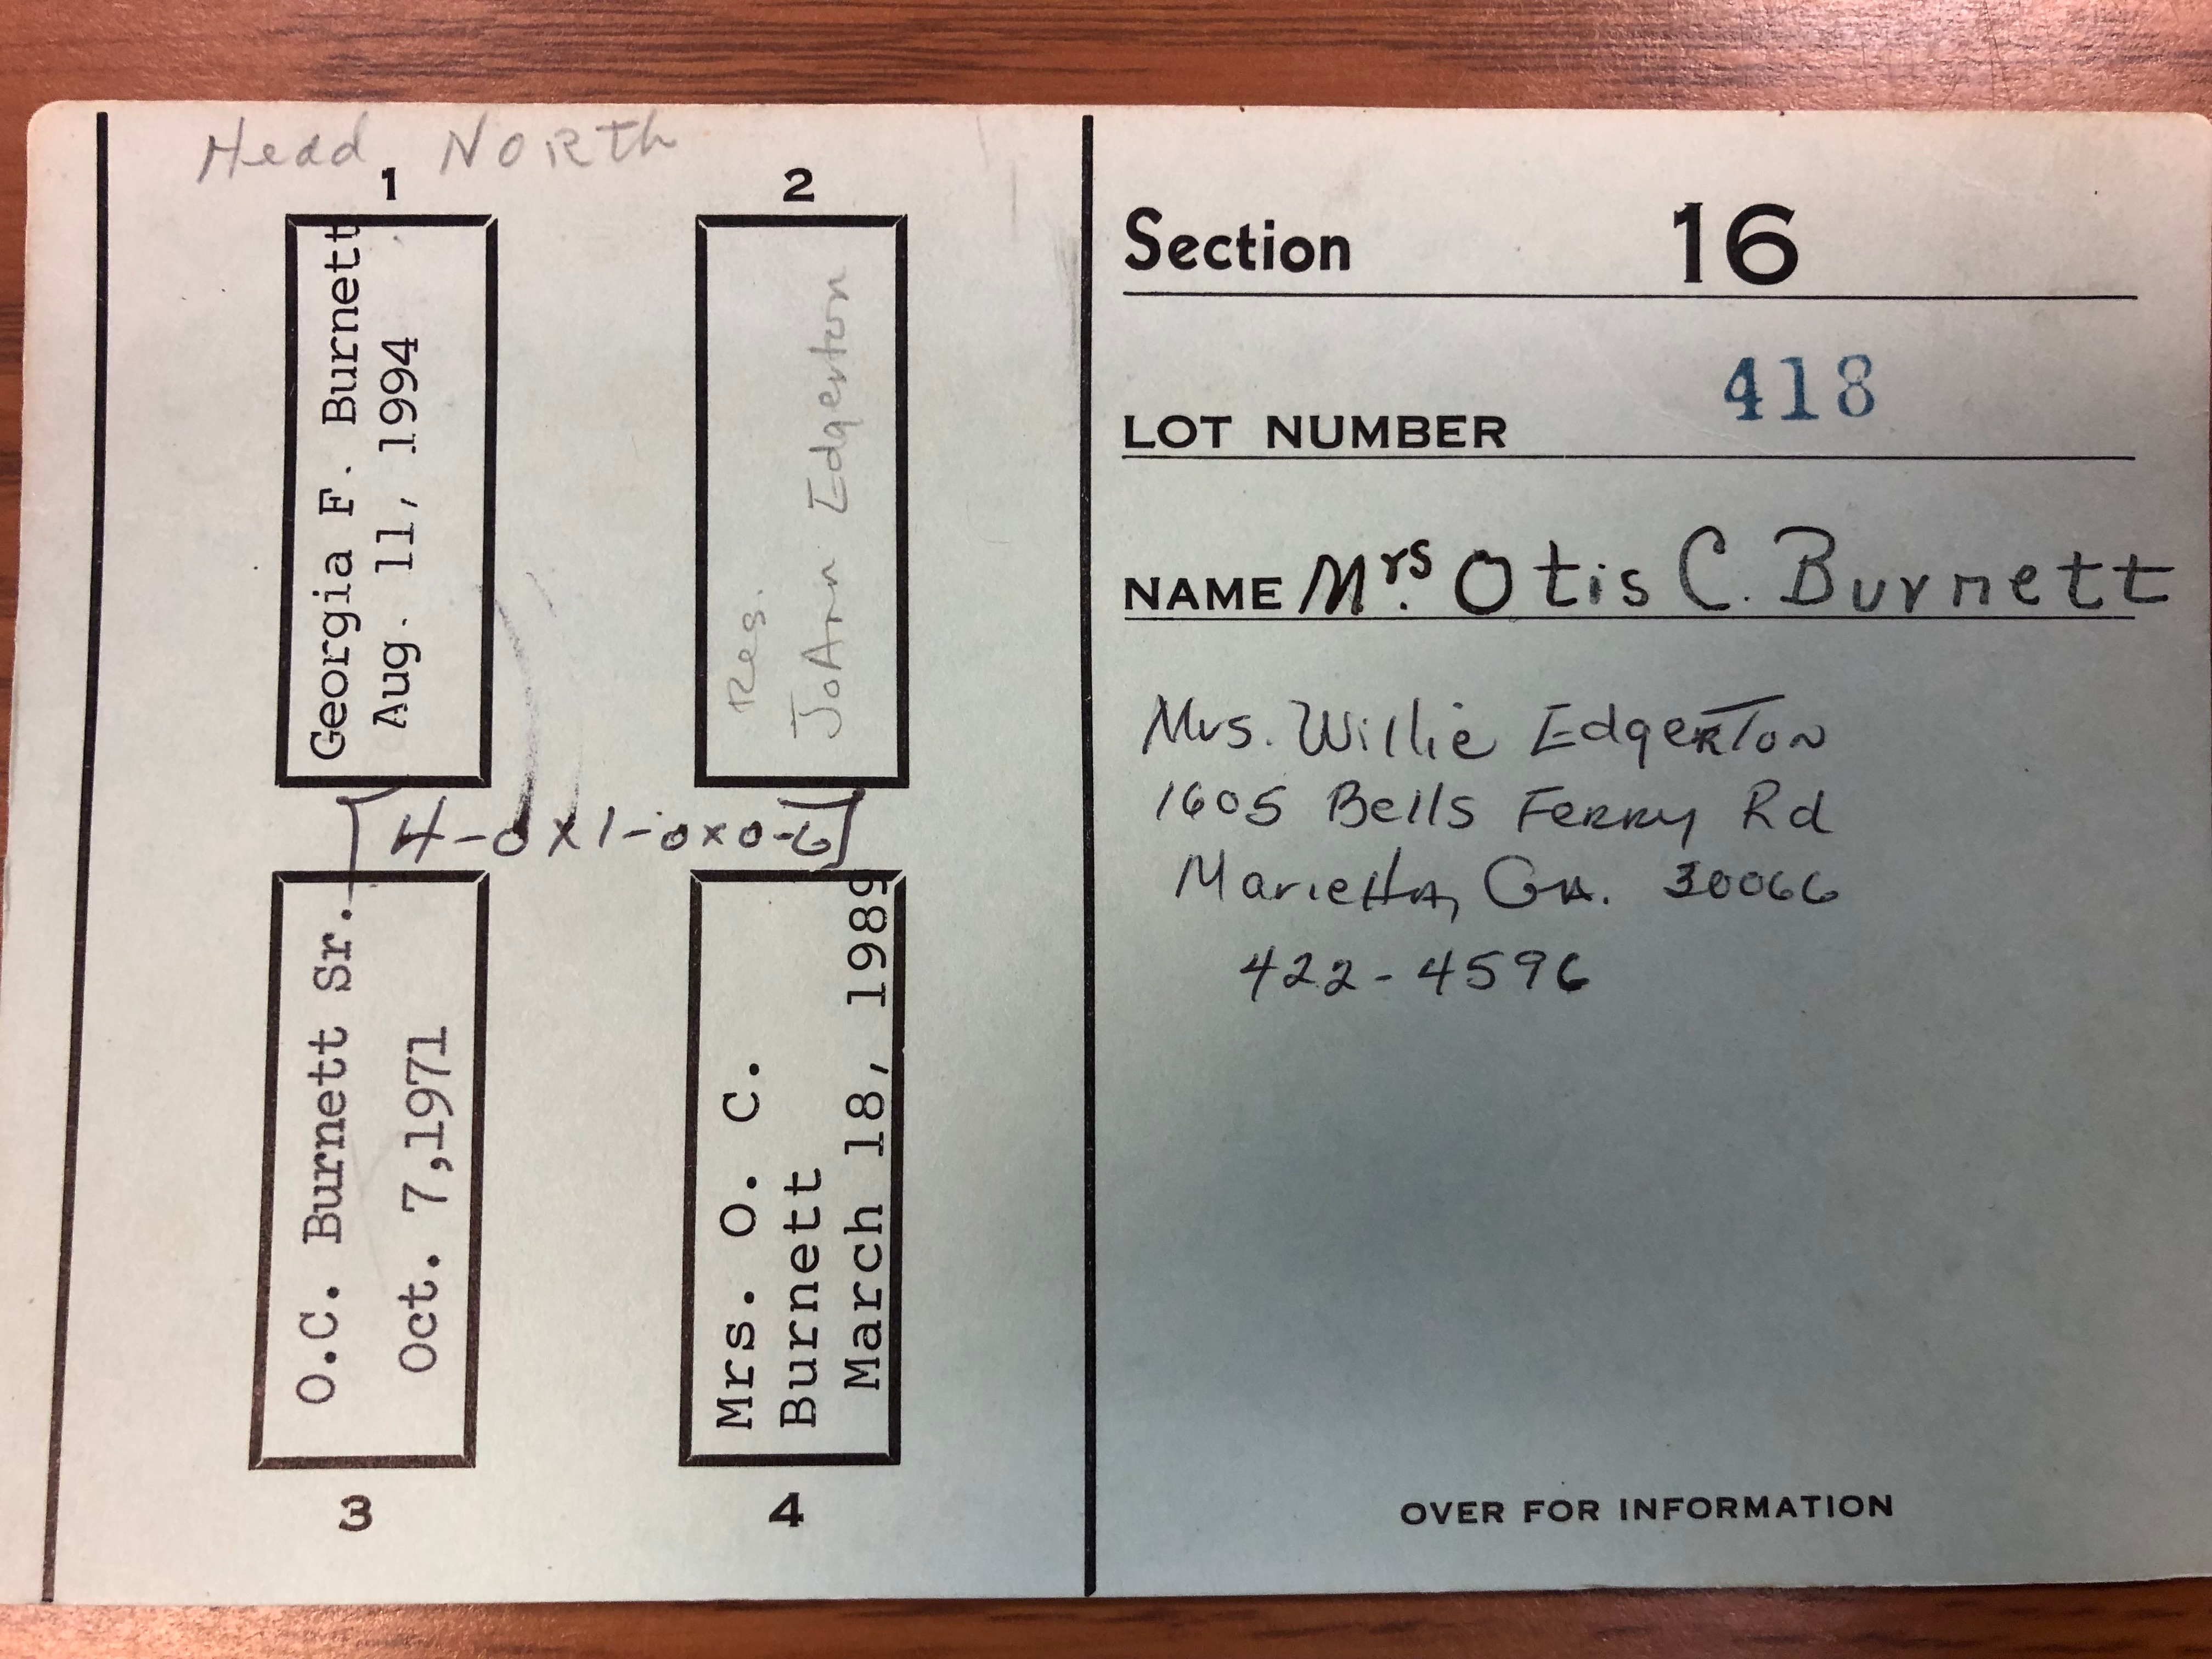 Head North
1
Georgia F. Burnett
Aug. 11, 1994
2
Res.
JoAnn Edgerton
4-0x1-0x0-6
O.C. Burnett Sr.
Oct. 7,1971
3
Mrs. O. C.
Burnett
March 18, 1989
4
Section 16
LOT NUMBER 418
NAME Mrs. Otis C. Burnett
Mrs. Willie Edgerton
1605 Bells Ferry Rd
Marietta, GA. 30066
422-4596
OVER FOR INFORMATION